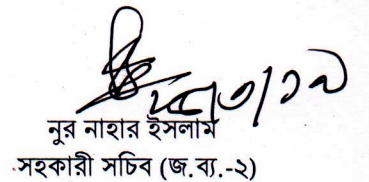 নুর নাহার ইসলাম
সহকারী সচিব (জ.ব্য.-২)